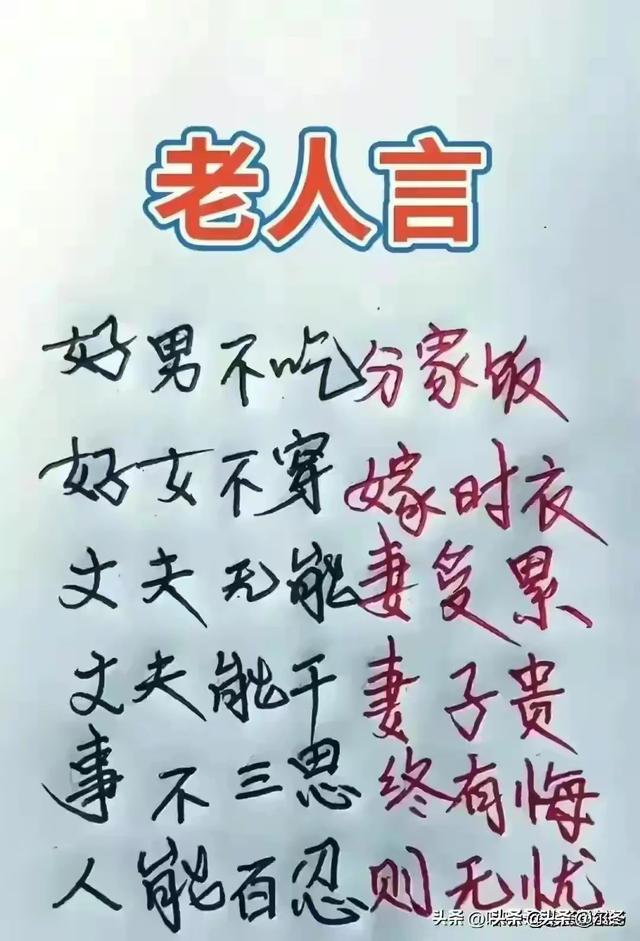 老人言
好男不吃分家饭
好女不穿嫁时衣
丈夫无能妻受累
丈夫能干妻子贵
事不三思终有悔
人能百忍则无忧
头条 @头条 @头条 @